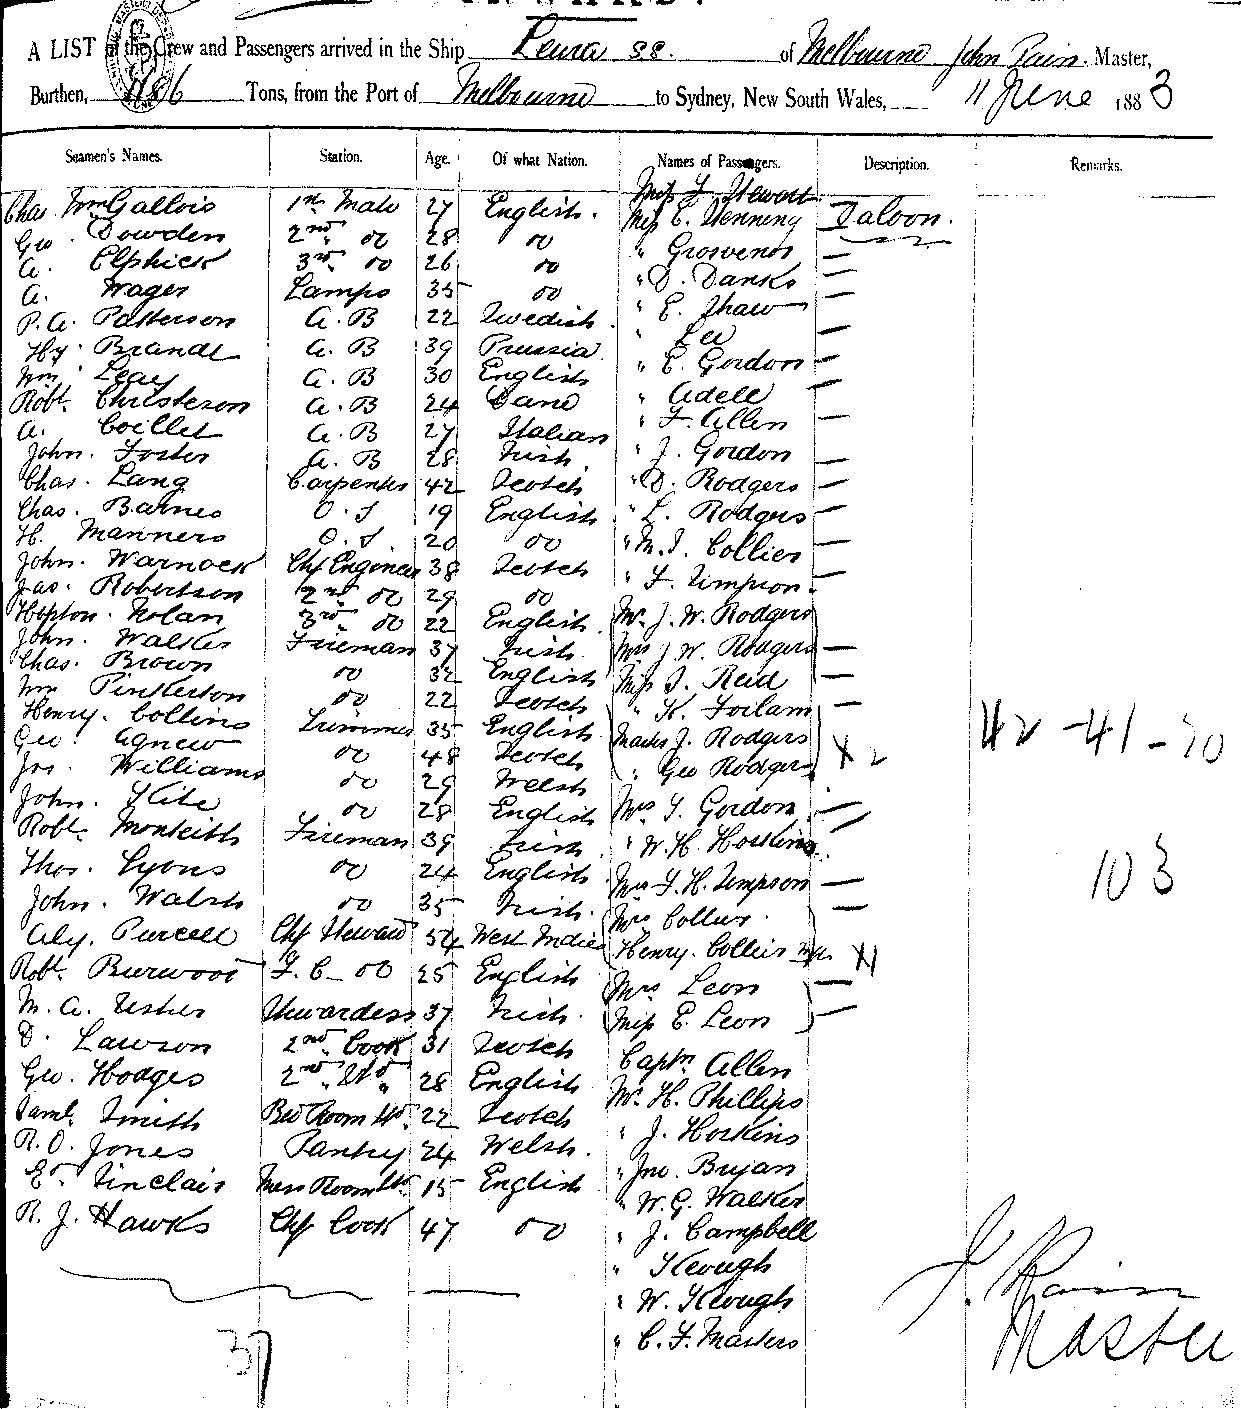 A LIST of the Crew and Passengers arrived in the Ship Leura ss. of Melbourne John Pain. Master,
Burthen, 1186 Tons, from the Port of Melbourne to Sydney, New South Wales, 11 June 1883
Seamen's Names. Station. Age. Of what Nation. Names of Passengers. Description. Remarks.
Miss F Stewart
Chas. Wm Gallois 1st Mate 27 English. Miss E. Henning Saloon.
Geo. Dowden 2nd do 28 do " Grosvenor
A. Elphick 3rd do 26 do " D. Danks
A. Wager Lamps 35 do " E. Shaw
P. A. Patterson A. B 22 Swedish " Lee
Hy. Brandt A. B 39 Prussia " E. Gordon
Wm. Leay A. B 30 English " Adell
Robt. Christeson A. B 24 Dane " F. Allen
A. Coillet A. B 27 Italian " J. Gordon
John. Foster A. B 28 Irish " D. Rodgers
Chas. Lang Carpenter 42 Scotch " L. Rodgers
Chas. Barnes O. S 19 English " M. J. Collier
H. Manners O. S 20 do " F. Timpson
John. Warnock Chf Engineer 38 Scotch Mr. J. W. Rodgers
Jas. Robertson 2nd do 29 do Mrs J W. Rodgers
Hopton. Nolan 3rd do 22 English Miss J. Reid
John. Walker Fireman 37 Irish " K. Foilam
Chas. Brown do 32 English Master J. Rodgers
Wm Pinkerton do 22 Scotch " Geo Rodgers X 2
Henry. Collins Trimmer 35 English Mrs J. Gordon 42 - 41 - 20
Geo. Agnew do 48 Scotch " W. H. Hoskins
Jos. Williams do 29 Welsh Mrs F. H. Timpson
John. Kite do 28 English Mrs Collier
Robt. Monteith Fireman 39 Irish Henry. Collier X1
Thos. Lyons do 24 English Mrs Leon 103
John. Walsh do 35 Irish. Miss E. Leon
Aly. Purcell Chf Steward 54 West Indies Captn. Allen
Robt. Burwood F. C. do 25 English Mr. H. Phillips
M. A. Usher Stewardess 37 Irish. " J. Hoskins
D. Lawson 2nd Cook 31 Scotch " Jno. Bryan
Geo. Hodges 2nd Std 28 English " W. G. Walker
Saml. Smith Bed Room Std. 22 Scotch " J. Campbell
R. O. Jones Pantry 24 Welsh. " Keough
Ed. Sinclair Mess Room Std 15 English " W. Keough
R. J. Hawks Chf Cook 47 do " C. F. Masters
37
J. Pain
Master